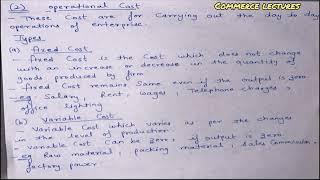 COMMERCE LECTURES
(2) operational Cost
- These Cost are for Carrying out the day to day
operations of enterprise.
Types
(a) fixed Cost
- fixed Cost is the Cost which does not change
with an increase or decrease in the quantity of
goods produced by firm
- fixed Cost remains Same even if the output is zero
- eg Salary, Rent, wages, Telephone charges,
office lighting
(b) Variable Cost
- Variable Cost which varies as per the changes
in the level of production
- Variable Cost Can be zero, if output is zero
- eg Raw material, packing material, Sales Commission,
factory power.